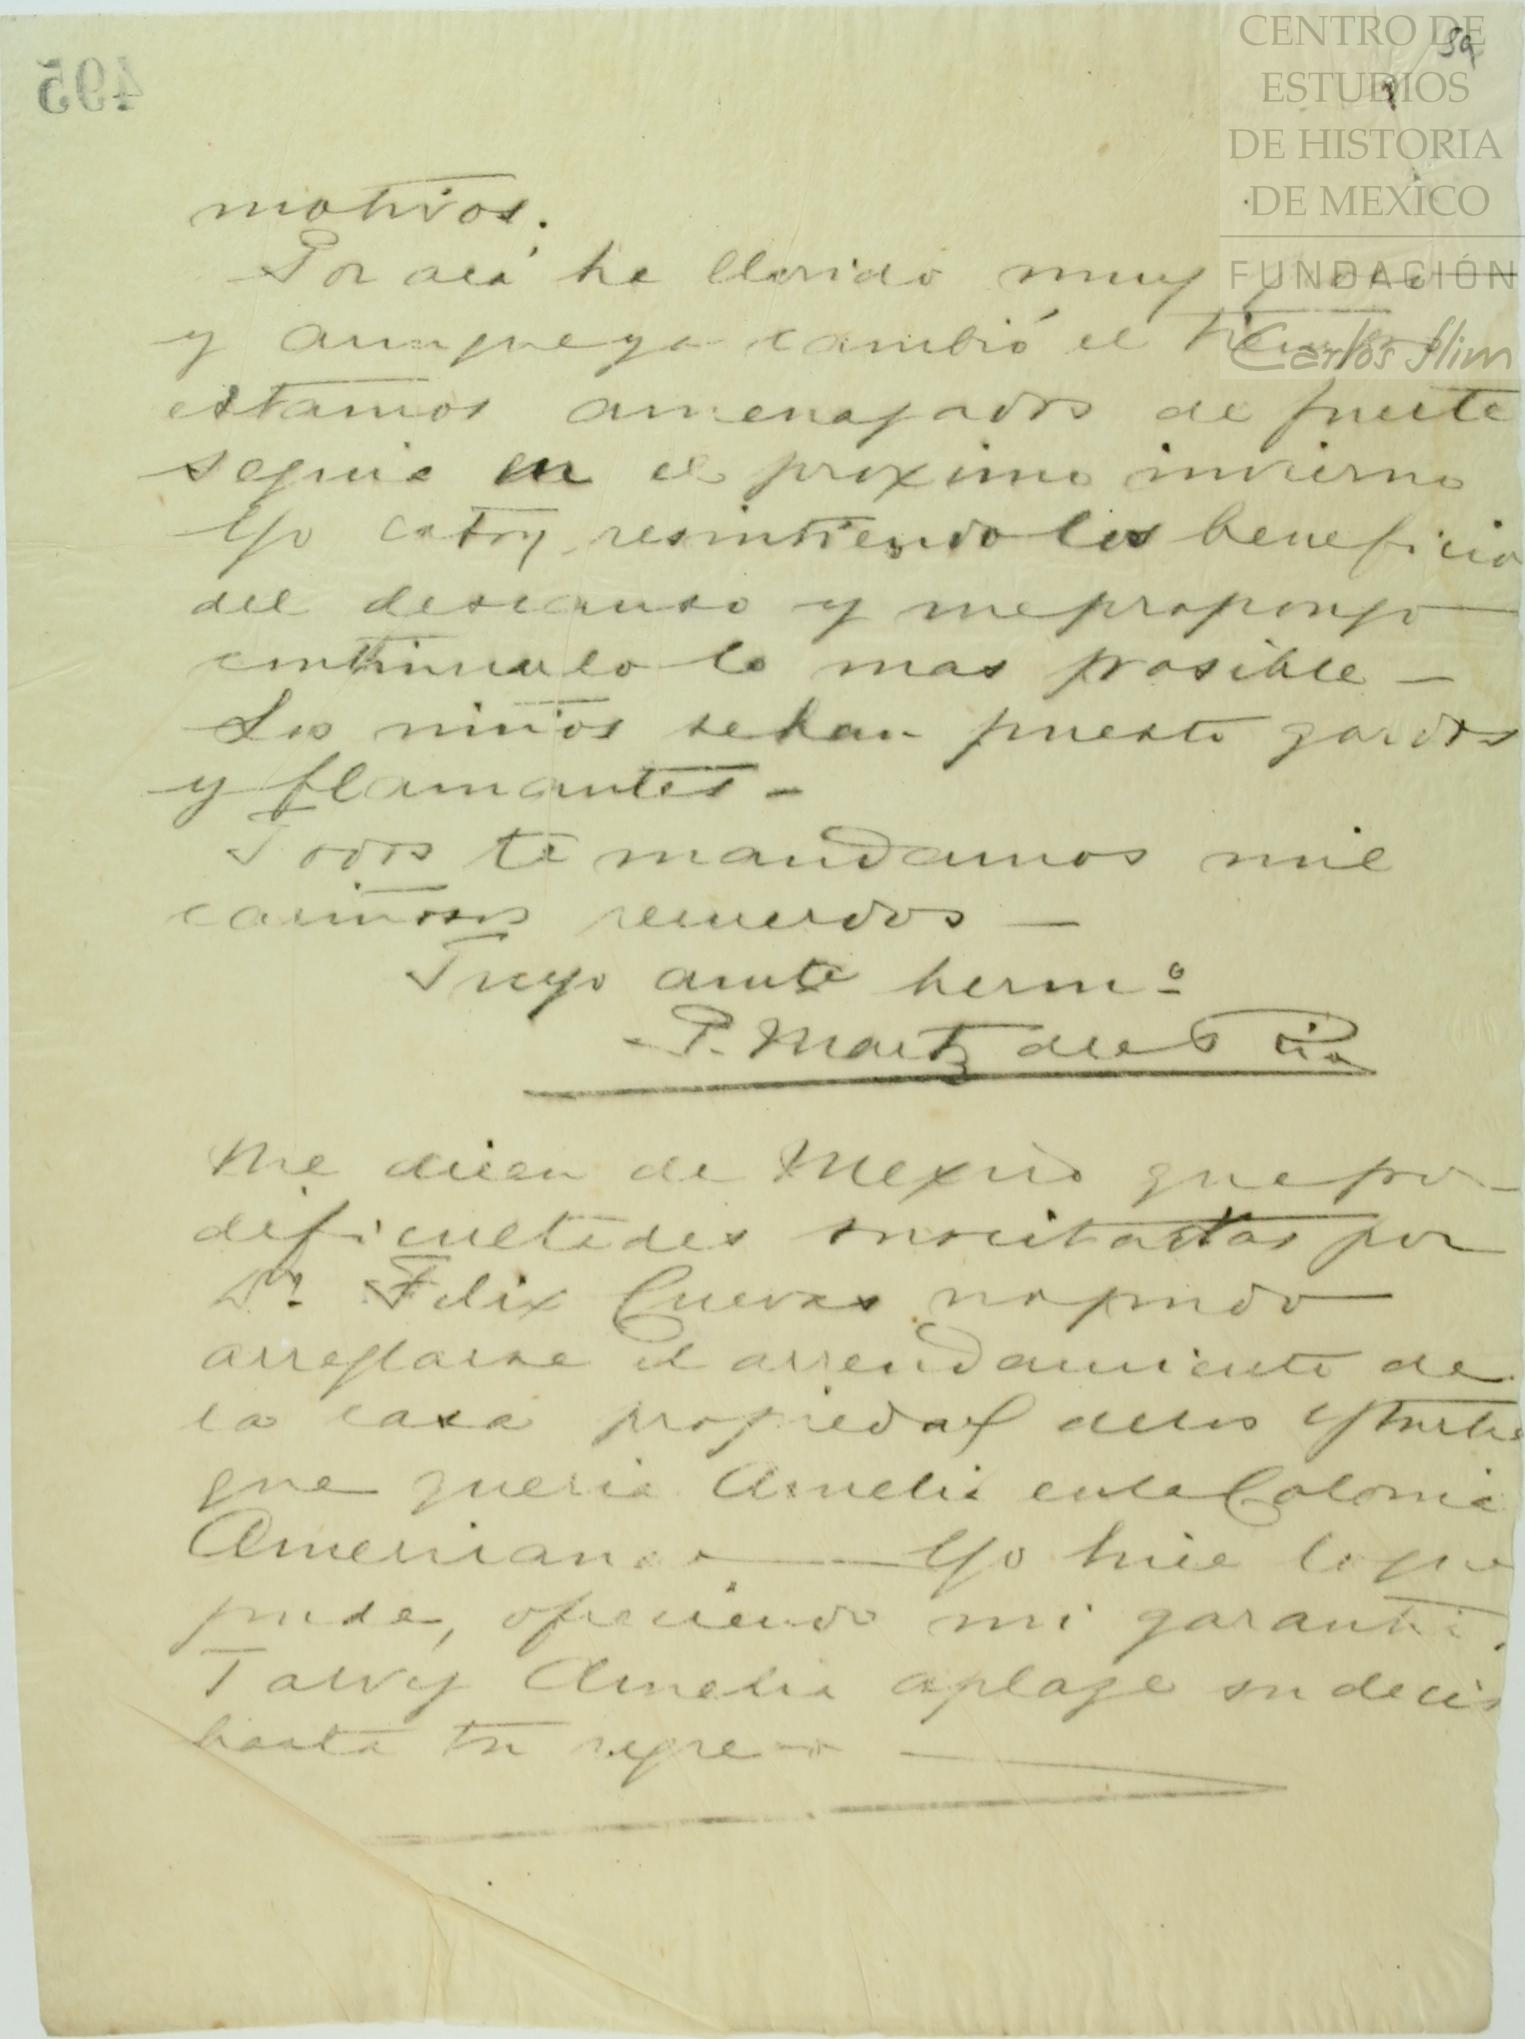 495
59
CENTRO DE
ESTUDIOS
DE HISTORIA
DE MEXICO
FUNDACIÓN
Carlos Slim
motivos.
Por acá ha llovido muy poco
y aunque ya cambió el tiempo
estamos amenazados de fuerte
sequia en el proximo invierno
Yo estoy resintiendo los beneficio
del descanso y me propongo
continuarlo lo mas posible —
Los niños se han puesto gordos
y flamantes —
Todos te mandamos mil
cariñosos recuerdos —
Tuyo amte hermº
P. Martz del Rio
Me dicen de Mexico que por
dificultades suscitadas por
Dn. Felix Cuevas no pudo
arreglarse el arrendamiento de
la casa propiedad de los Yturbe
que queria Amelia en la Colonia
Americana — Yo hice lo que
pude, ofreciendo mi garantia.
Talvez Amelia aplaze su decis
hasta tu regreso —